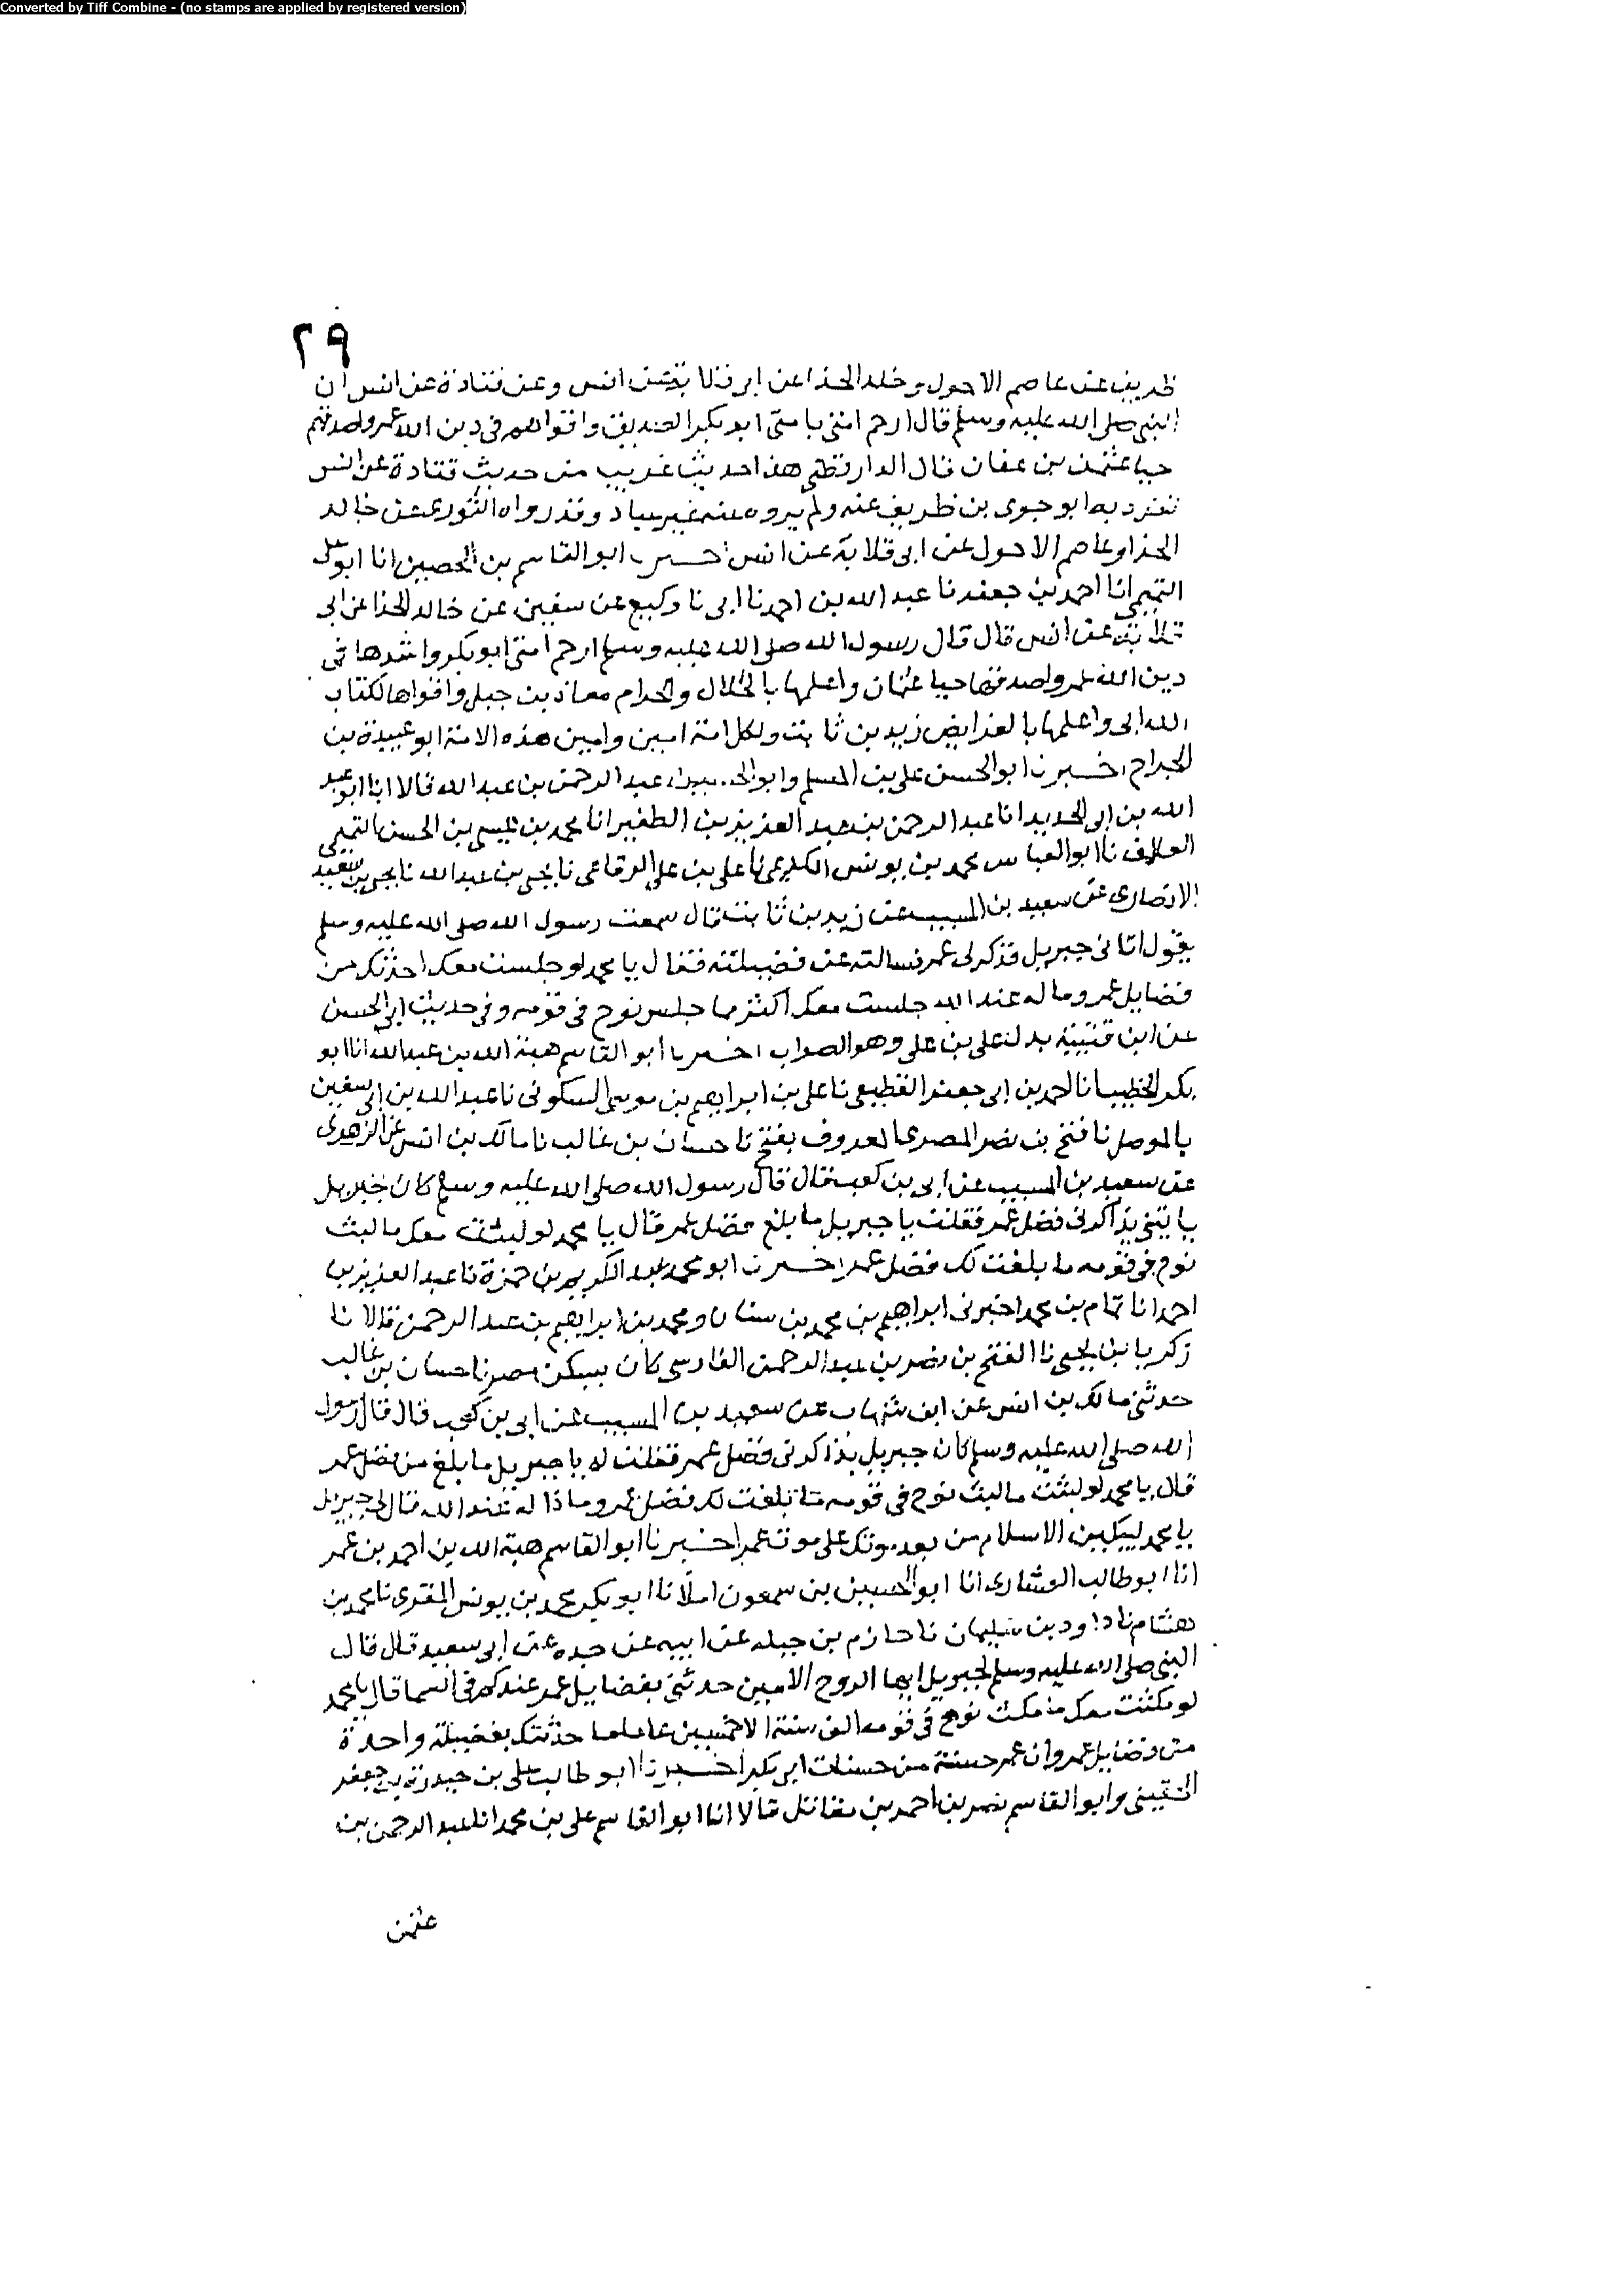 Converted by Tiff Combine - (no stamps are applied by registered version)
٢٩
ظريف عن عاصم الاحول وخلد الحذا عن ابي قلابة عن انس وعن قتادة عن انس ان
النبي صلى الله عليه وسلم قال ارحم امتي بامتي ابو بكر الصديق واقواهم في دين الله عمر واصدقهم
حيا عثمن بن عفان قال الدارقطني هذا حديث غريب من حديث قتادة عن انس
تفرد به ابو حيوى بن ظريف عنه ولم يروه عنه غير وقد رواه الثوري عن خالد
الحذا وعاصم الاحول عن ابي قلابة عن انس ابو القاسم بن الحصين انا ابو علي
التميمي انا احمد بن جعفر نا عبد الله بن احمد نا ابي نا وكيع عن سفين عن خالد الحذا عن ابي
قلابة عن انس قال قال رسول الله صلى الله عليه وسلم ارحم امتي ابو بكر واشدها في
دين الله عمر واصدقها حيا عثمان واعلمها بالحلال والحرام معاذ بن جبل واقراها لكتاب
الله ابي واعلمها بالفرايض زيد بن ثابت ولكل امة امين وامين هذه الامة ابو عبيدة بن
الجراح اخبرنا ابو الحسن علي بن المسلم وابو عبد الرحمن بن عبد الله قالا انا ابو عبد
الله بن ابي الحديد انا عبد الرحمن بن عبد العزيز بن الطفير انا محمد بن عيسى بن الحسن التميمي
العلاف نا ابو العباس محمد بن يونس الكديمي نا علي بن علي الرفاعي نا يحيى بن عبد الله نا يحيى بن سعيد
الانصاري عن سعيد بن المسيب عن زيد بن ثابت قال سمعت رسول الله صلى الله عليه وسلم
يقول اتاني جبريل فذكر لي عمر فسالته عن فضيلته فقال يا محمد لو جلست معك احدثك من
فضايل عمر وما له عند الله جلست معك اكثر مما جلس نوح في قومه وفي حديث ابي الحسن
عن ابن قتيبة بدل علي بن علي وهو الصواب اخبرنا ابو القاسم هبة الله بن عبد الله انا ابو
بكر الخطيب انا احمد بن ابي جعفر القطيعي نا علي بن ابراهيم بن موسى السكوني نا عبد الله بن ابي سفين
بالموصل نا فتح بن نصر المصري المعروف بفتح نا حسان بن غالب نا مالك بن انس عن الزهري
عن سعيد بن المسيب عن ابي بن كعب قال قال رسول الله صلى الله عليه وسلم كان جبريل
ياتيني يذاكرني فضل عمر فقلت يا جبريل ما بلغ فضل عمر قال يا محمد لو لبثت معك ما لبث
نوح في قومه ما بلغت لك فضل عمر اخبرنا ابو محمد عبد الكريم بن حمزة نا عبد العزيز بن
احمد انا تمام بن محمد اخبرني ابراهيم بن محمد بن سنان ومحمد بن ابراهيم بن عبد الرحمن قالا نا
زكريا بن يحيى نا الفتح بن نصر بن عبد الرحمن الفارسي كان يسكن مصر نا حسان بن غالب
حدثني مالك بن انس عن ابن شهاب عن سعيد بن المسيب عن ابي بن كعب قال قال رسول
الله صلى الله عليه وسلم كان جبريل يذاكرني فضل عمر فقلت له يا جبريل ما بلغ من فضل عمر
قال يا محمد لو لبثت ما لبث نوح في قومه ما بلغت لك فضل عمر وماذا له عند الله قال لي جبريل
يا محمد ليبكين الاسلام من بعد موتك على موت عمر اخبرنا ابو القاسم هبة الله بن احمد بن عمر
انا ابو طالب العشاري انا ابو الحسين بن سمعون املا نا ابو بكر محمد بن يونس المقري نا محمد بن
هشام نا داود بن سليمان نا حازم بن جبله عن ابيه عن جده عن ابي سعيد قال قال
النبي صلى الله عليه وسلم لجبريل ايها الروح الامين حدثني بفضايل عمر عندكم في السما قال يا محمد
لو مكثت معك ما مكث نوح في قومه الف سنة الا خمسين عاما ما حدثتك بفضيلة واحدة
من فضايل عمر وان عمر حسنة من حسنات ابي بكر اخبرنا ابو طالب علي بن حيدرة بن جعفر
الحسيني وابو القاسم نصر بن احمد بن مقاتل قالا انا ابو القاسم علي بن محمد انا عبد الرحمن بن
عثمن